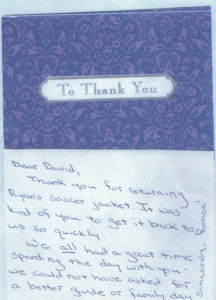 To Thank You
Dear David,
Thank you for returning
Ryan's soccer jacket. It was
kind of you to get it back to
us so quickly.
We all had a great time
spending the day with you -
we could not have asked for
a better guide or family day.
Sincerely,